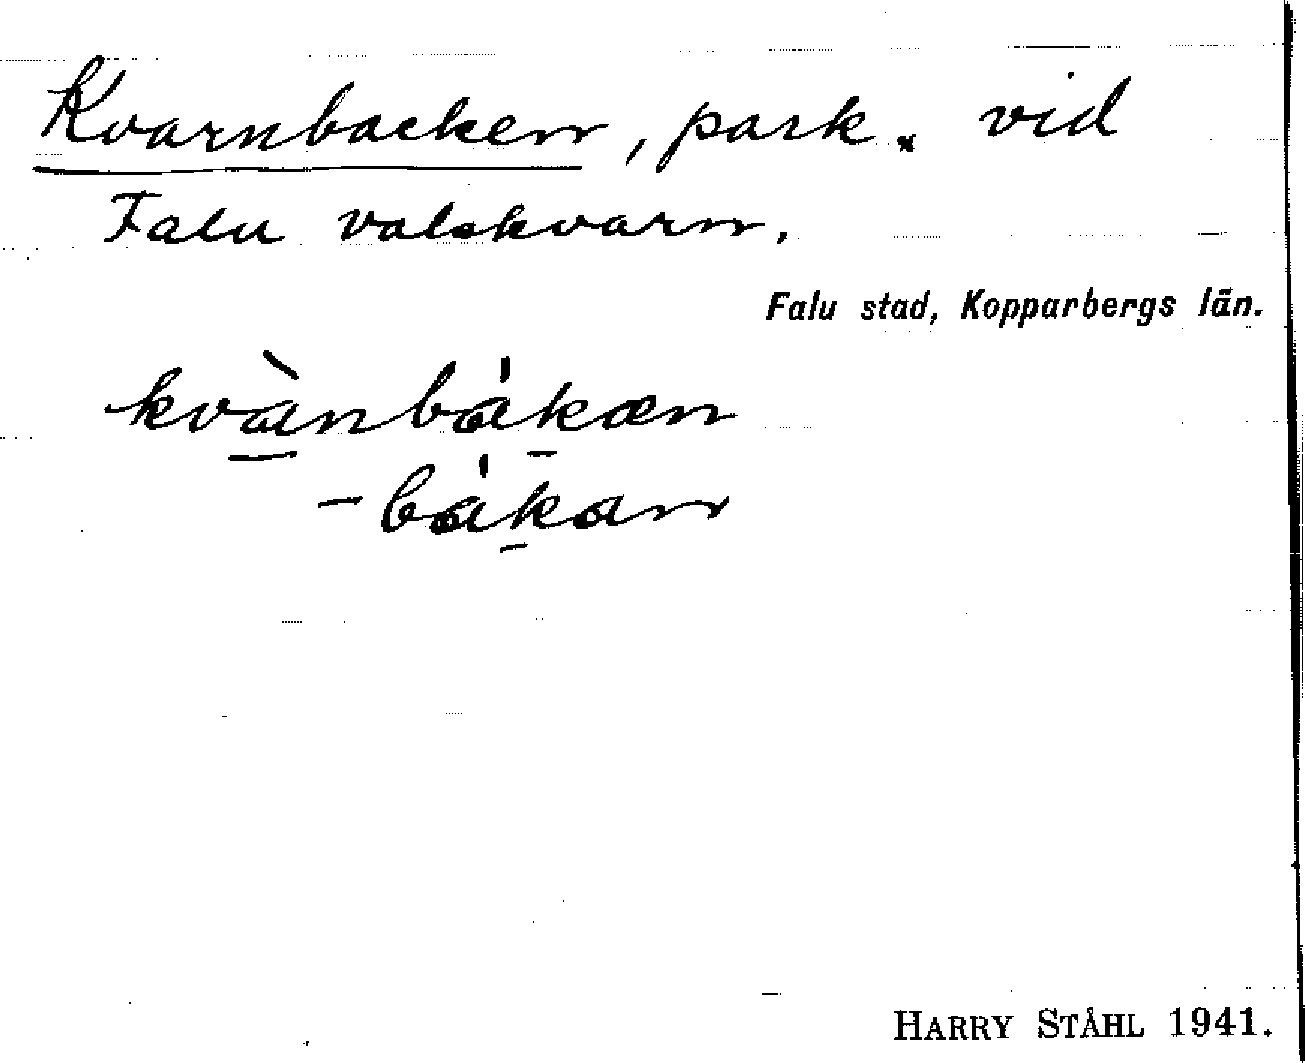 Kvarnbacken, park. vid
Falu valskvarn.
Falu stad, Kopparbergs län.
kvànbákæn
-bákan
HARRY STÅHL 1941.